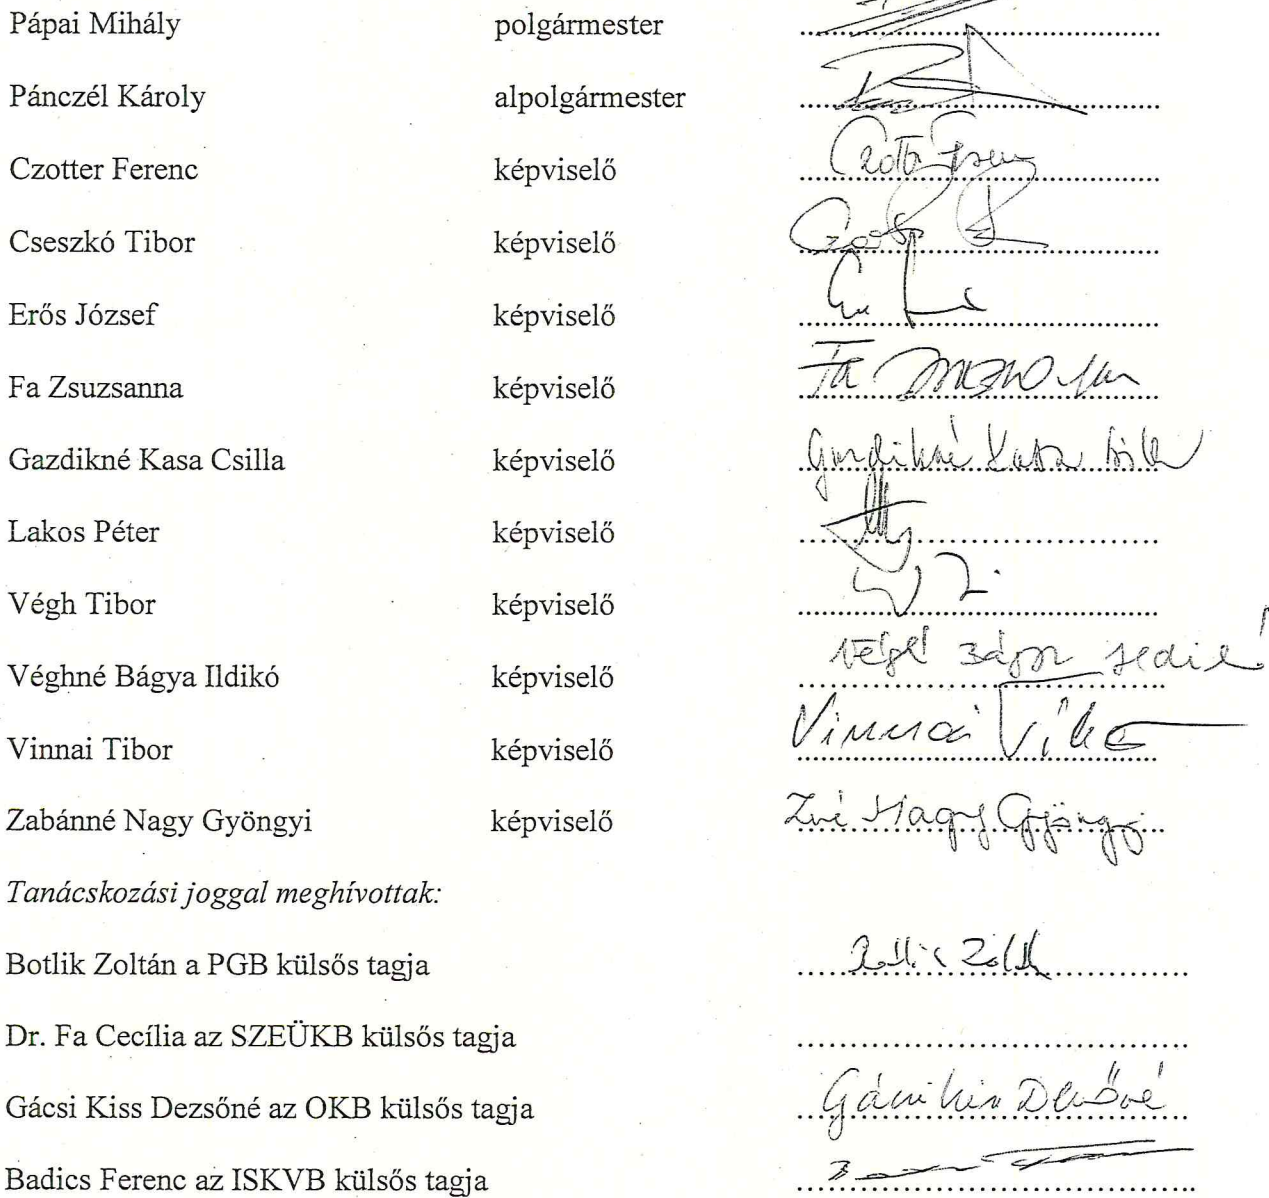 Pápai Mihály polgármester
Pánczél Károly alpolgármester
Czotter Ferenc képviselő Czotter Ferenc
Cseszkó Tibor képviselő
Erős József képviselő
Fa Zsuzsanna képviselő Fa Zsuzsanna
Gazdikné Kasa Csilla képviselő Gazdikné Kasa Csilla
Lakos Péter képviselő
Végh Tibor képviselő
Véghné Bágya Ildikó képviselő
Vinnai Tibor képviselő Vinnai
Zabánné Nagy Gyöngyi képviselő Zné Nagy Gyöngyi
Tanácskozási joggal meghívottak:
Botlik Zoltán a PGB külsős tagja Botlik Zoltán
Dr. Fa Cecília az SZEÜKB külsős tagja
Gácsi Kiss Dezsőné az OKB külsős tagja Gácsi Kiss Dezsőné
Badics Ferenc az ISKVB külsős tagja